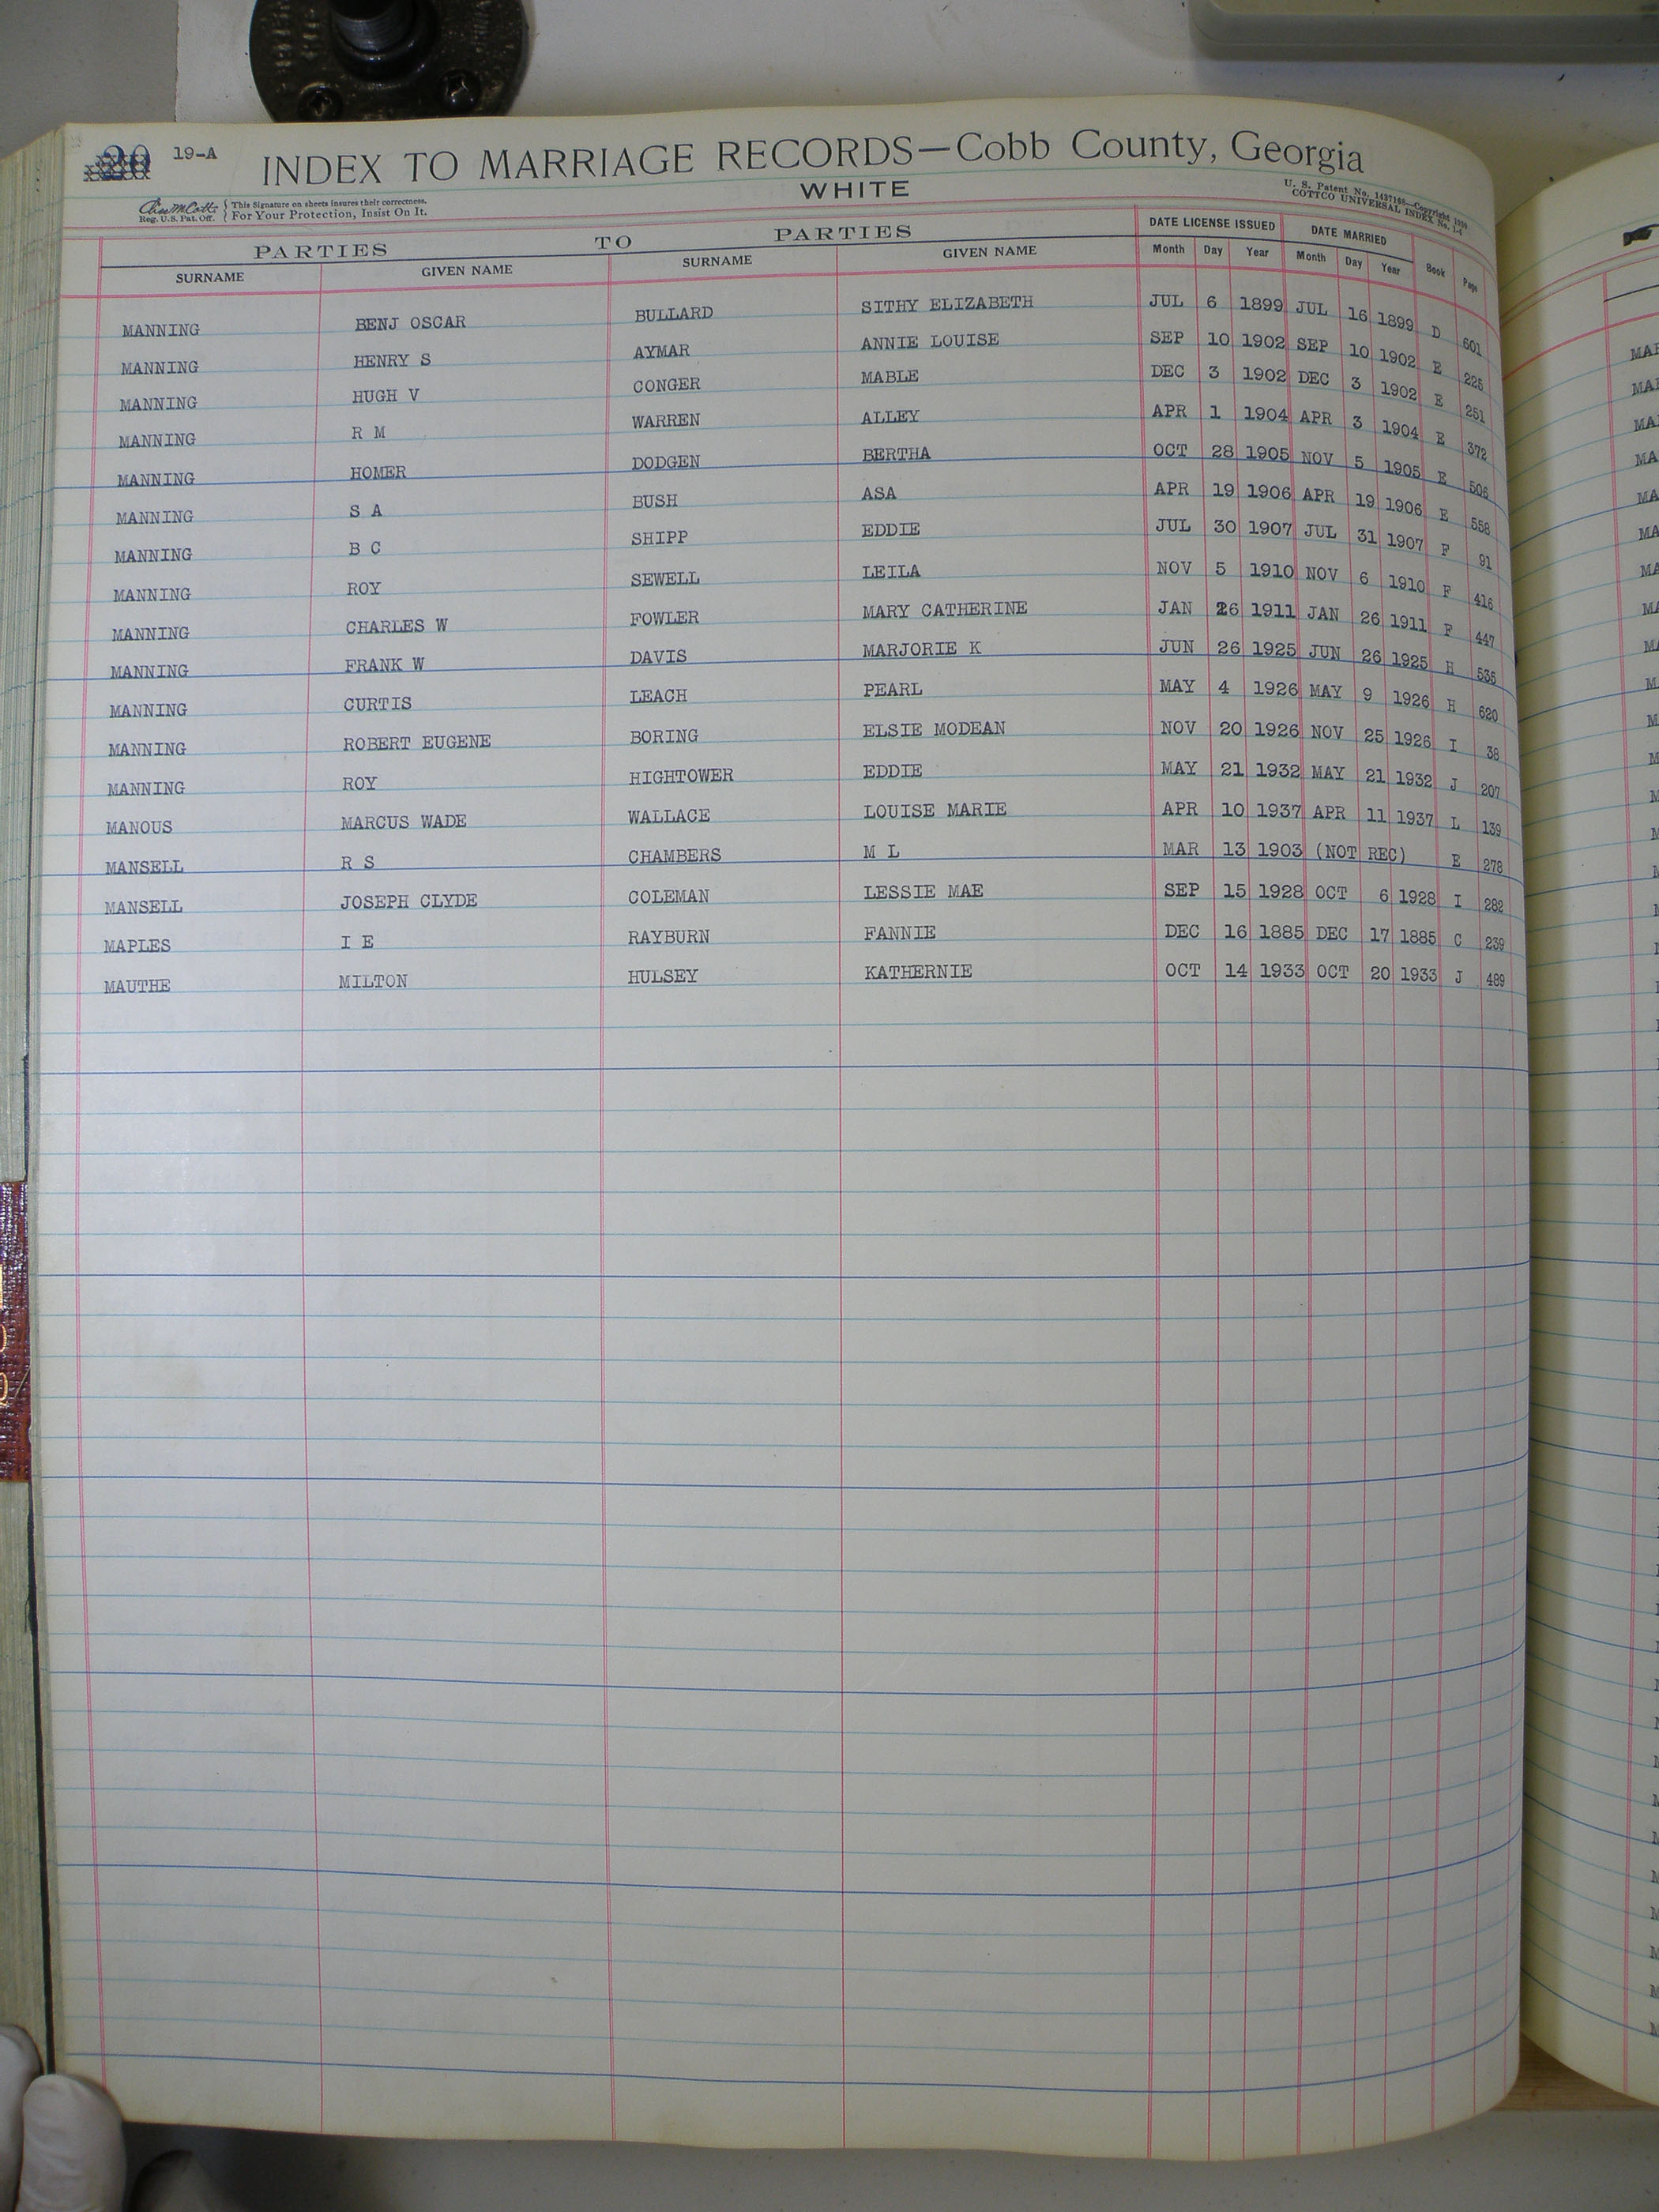 20 19-A INDEX TO MARRIAGE RECORDS—Cobb County, Georgia
WHITE
Reg. U.S. Pat. Off. This Signature on sheets insures their correctness. For Your Protection, Insist On It.
U. S. Patent No. 1437168—Copyright
COTTCO UNIVERSAL INDEX No. 1-S
PARTIES TO PARTIES DATE LICENSE ISSUED DATE MARRIED
SURNAME GIVEN NAME SURNAME GIVEN NAME Month Day Year Month Day Year Book Page
MANNING BENJ OSCAR BULLARD SITHY ELIZABETH JUL 6 1899 JUL 16 1899 D 601
MANNING HENRY S AYMAR ANNIE LOUISE SEP 10 1902 SEP 10 1902 E 225
MANNING HUGH V CONGER MABLE DEC 3 1902 DEC 3 1902 E 251
MANNING R M WARREN ALLEY APR 1 1904 APR 3 1904 E 372
MANNING HOMER DODGEN BERTHA OCT 28 1905 NOV 5 1905 E 506
MANNING S A BUSH ASA APR 19 1906 APR 19 1906 E 558
MANNING B C SHIPP EDDIE JUL 30 1907 JUL 31 1907 F 91
MANNING ROY SEWELL LEILA NOV 5 1910 NOV 6 1910 F 416
MANNING CHARLES W FOWLER MARY CATHERINE JAN 26 1911 JAN 26 1911 F 447
MANNING FRANK W DAVIS MARJORIE K JUN 26 1925 JUN 26 1925 H 535
MANNING CURTIS LEACH PEARL MAY 4 1926 MAY 9 1926 H 620
MANNING ROBERT EUGENE BORING ELSIE MODEAN NOV 20 1926 NOV 25 1926 I 38
MANNING ROY HIGHTOWER EDDIE MAY 21 1932 MAY 21 1932 J 207
MANOUS MARCUS WADE WALLACE LOUISE MARIE APR 10 1937 APR 11 1937 L 139
MANSELL R S CHAMBERS M L MAR 13 1903 (NOT REC) E 278
MANSELL JOSEPH CLYDE COLEMAN LESSIE MAE SEP 15 1928 OCT 6 1928 I 282
MAPLES I E RAYBURN FANNIE DEC 16 1885 DEC 17 1885 C 239
MAUTHE MILTON HULSEY KATHERNIE OCT 14 1933 OCT 20 1933 J 489